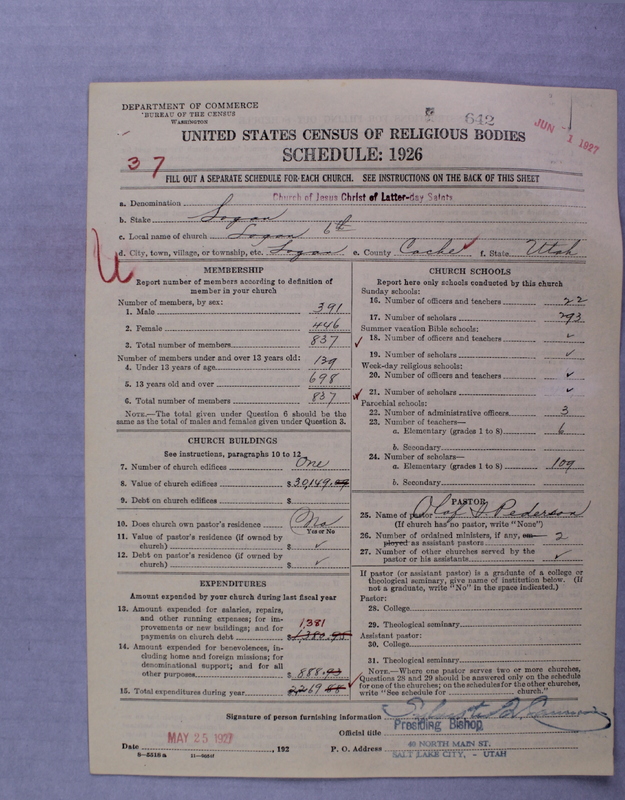 DEPARTMENT OF COMMERCE
BUREAU OF THE CENSUS
WASHINGTON
642
JUN 1 1927
UNITED STATES CENSUS OF RELIGIOUS BODIES
SCHEDULE: 1926
37
FILL OUT A SEPARATE SCHEDULE FOR EACH CHURCH. SEE INSTRUCTIONS ON THE BACK OF THIS SHEET
a. Denomination Church of Jesus Christ of Latter-day Saints
b. Stake Logan
c. Local name of church Logan 6th
d. City, town, village, or township, etc. Logan e. County Cache f. State Utah
MEMBERSHIP
Report number of members according to definition of
member in your church
Number of members, by sex:
1. Male 391
2. Female 446
3. Total number of members 837
Number of members under and over 13 years old:
4. Under 13 years of age 139
5. 13 years old and over 698
6. Total number of members 837
NOTE.—The total given under Question 6 should be
same as the total of males and females given under Question 3.
CHURCH BUILDINGS
See instructions, paragraphs 10 to 12
7. Number of church edifices One
8. Value of church edifices $ 30,149.
9. Debt on church edifices $
10. Does church own pastor's residence No
Yes or No
11. Value of pastor's residence (if owned by
church) $ ✓
12. Debt on pastor's residence (if owned by
church) $ ✓
EXPENDITURES
Amount expended by your church during last fiscal year
13. Amount expended for salaries, repairs,
and other running expenses; for im-
provements or new buildings; and for 1,381
payments on church debt $ 1,380.95
14. Amount expended for benevolences,
including home and foreign missions; for
denominational support; and for all
other purposes $ 888.93
15. Total expenditures during year 2269 88
CHURCH SCHOOLS
Report here only schools conducted by this church
Sunday schools:
16. Number of officers and teachers 22
17. Number of scholars 293
Summer vacation Bible schools:
18. Number of officers and teachers ✓
19. Number of scholars ✓
Week-day religious schools:
20. Number of officers and teachers ✓
21. Number of scholars ✓
Parochial schools:
22. Number of administrative officers 3
23. Number of teachers—
a. Elementary (grades 1 to 8) 6
b. Secondary
24. Number of scholars—
a. Elementary (grades 1 to 8) 109
b. Secondary
PASTOR
25. Name of pastor Olof I Pederson
(If church has no pastor, write "None")
26. Number of ordained ministers, if any, em- 2
ployed as assistant pastors
27. Number of other churches served by the
pastor or his assistants ✓
If pastor (or assistant pastor) is a graduate of a college or
theological seminary, give name of institution below. (If
not a graduate, write "No" in the space indicated.)
Pastor:
28. College
29. Theological seminary
Assistant pastor:
30. College
31. Theological seminary
NOTE.—Where one pastor serves two or more churches,
Questions 28 and 29 should be answered only on the schedule
for one of the churches; on the schedules for the other churches,
write "See schedule for church."
Signature of person furnishing information
Official title Presiding Bishop
Date MAY 25 1927, 192 P. O. Address 40 NORTH MAIN ST.
SALT LAKE CITY, - UTAH
8-5516a